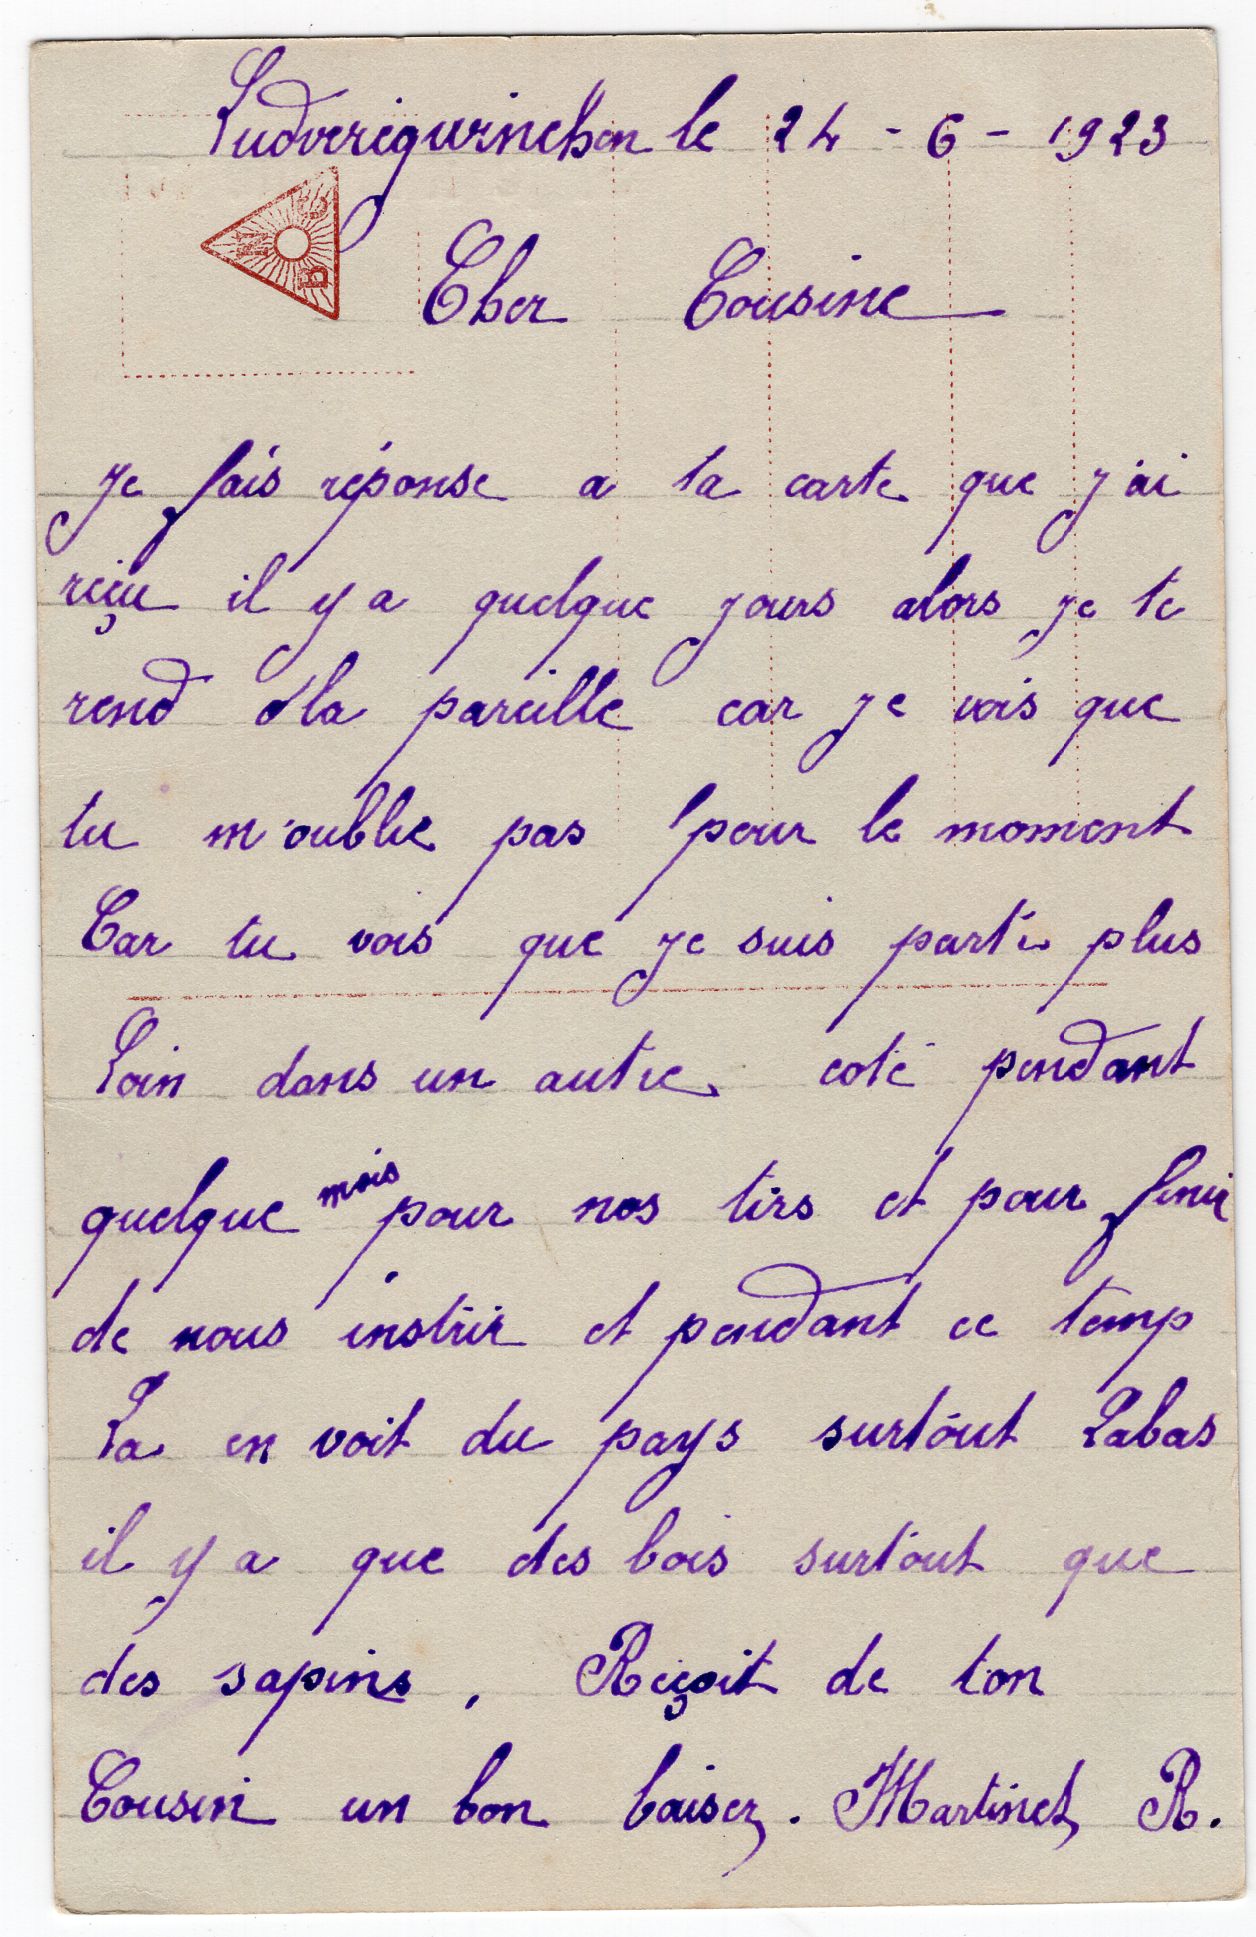 Ludveriguvinchen le 24 - 6 - 1923
BNC
Cher Cousine
Je fais réponse a la carte que j'ai
reçu il y a quelque jours alors je te
rend la pareille car je vois que
tu m'oublie pas pour le moment
Car tu vois que je suis partie plus
Loin dans un autre coté pendant
quelque mois pour nos tirs et pour finir
de nous instrir et pendant ce temp
La en voit du pays surtout Labas
il y a que des bois surtout que
des sapins, Reçoit de ton
Cousin un bon baiser. Martinet R.